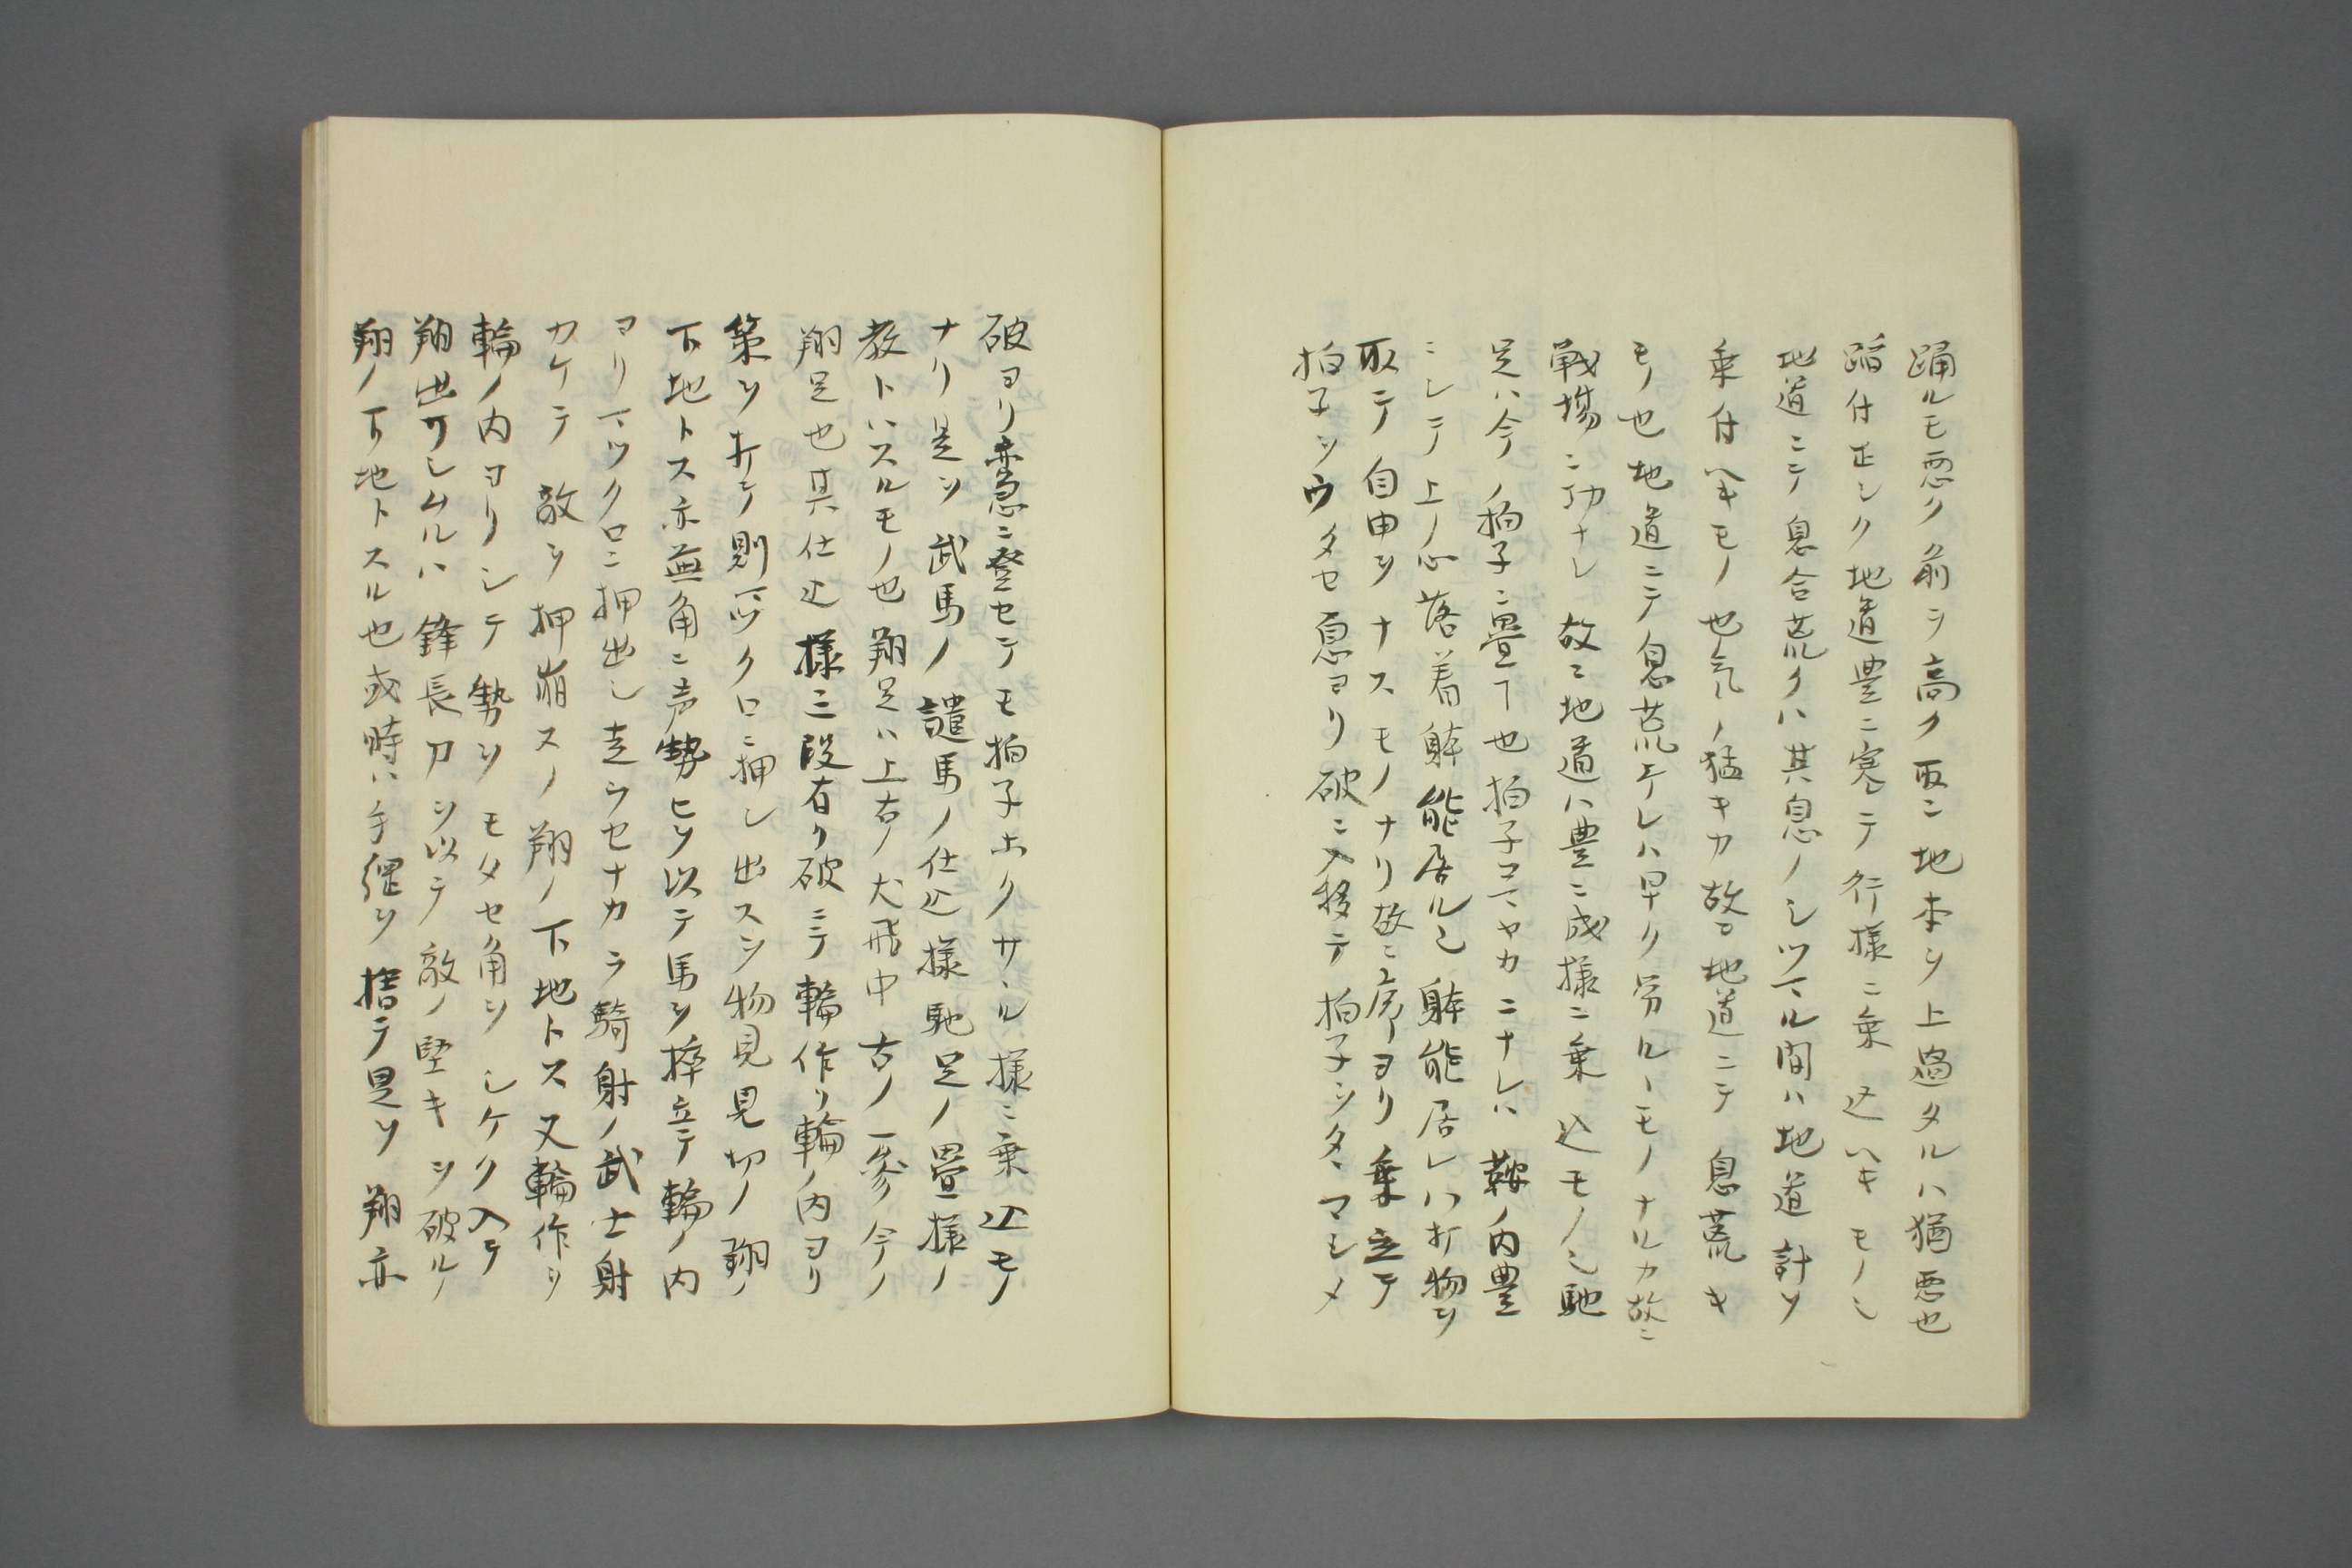 踊ルモ悪ク前ヲ高ク取ニ地本ヲ上過タルハ猶悪也
踏付正シク地道豊ニ寛テ行様ニ乗込ヘキモノ也
地道ニテ息合荒クハ其息ノシツマル間ハ地道計ヲ
乗付ヘキモノ也気ノ猛キカ故ニ地道ニテ息荒キ
モノ也地道ニテ息荒ケレハ早ク労ルヽモノナルカ故ニ
戦場ニ功ナシ故ニ地道ハ豊ニ成様ニ乗込モノ也馳
足ハ今ノ拍子ニ畳丁也拍子コマヤカニナレハ鞍ノ内豊
ニシテ上ノ心落着躰能居ル也躰能居レハ打物ヲ
取テ自由ヲナスモノナリ故ニ序ヨリ乗立テ
拍子ヲウタセ急ヨリ破ニ入移テ拍子ヲタヽマシメ
破ヨリ亦急ニ登セテモ拍子ホクサヽル様ニ乗込モノ
ナリ是ヲ武馬ノ譴馬ノ仕込様馳足ノ畳様ノ
教トハスルモノ也翔足ハ上古ノ犬飛中古ノ一参今ノ
翔足也其仕込様三段有リ破ニテ輪作リ輪ノ内ヨリ
策ヲ打テ則マツクロニ押シ出スヲ物見見切ノ翔ノ
下地トス亦並角ニ声勢ヒヲ以テ馬ヲ捽立テ輪ノ内
ヨリマツクロニ押出シ走ラセナカラ騎射ノ武士射
カケテ敵ヲ押崩スノ翔ノ下地トス又輪作リ
輪ノ内ヨリシテ勢ヲモタセ角ヲシケク入テ
翔出サシムルハ鋒長刀ヲ以テ敵ノ堅キヲ破ルノ
翔ノ下地トスル也或時ハ手縄ヲ捨テ是ヲ翔亦